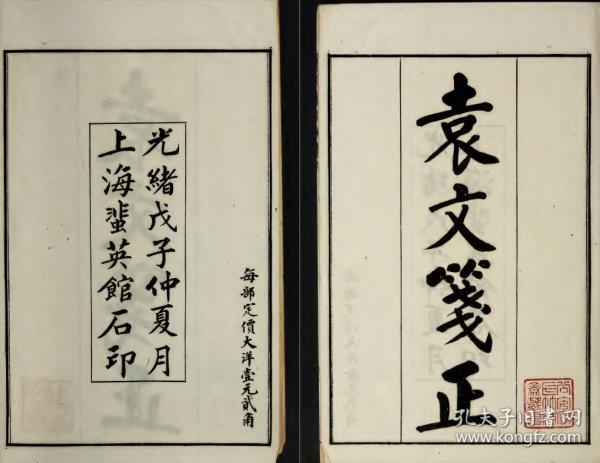 袁文箋正
光緒戊子仲夏月
上海蜚英館石印
每部定價大洋壹元貳角
孔夫子旧书网
www.kongfz.com